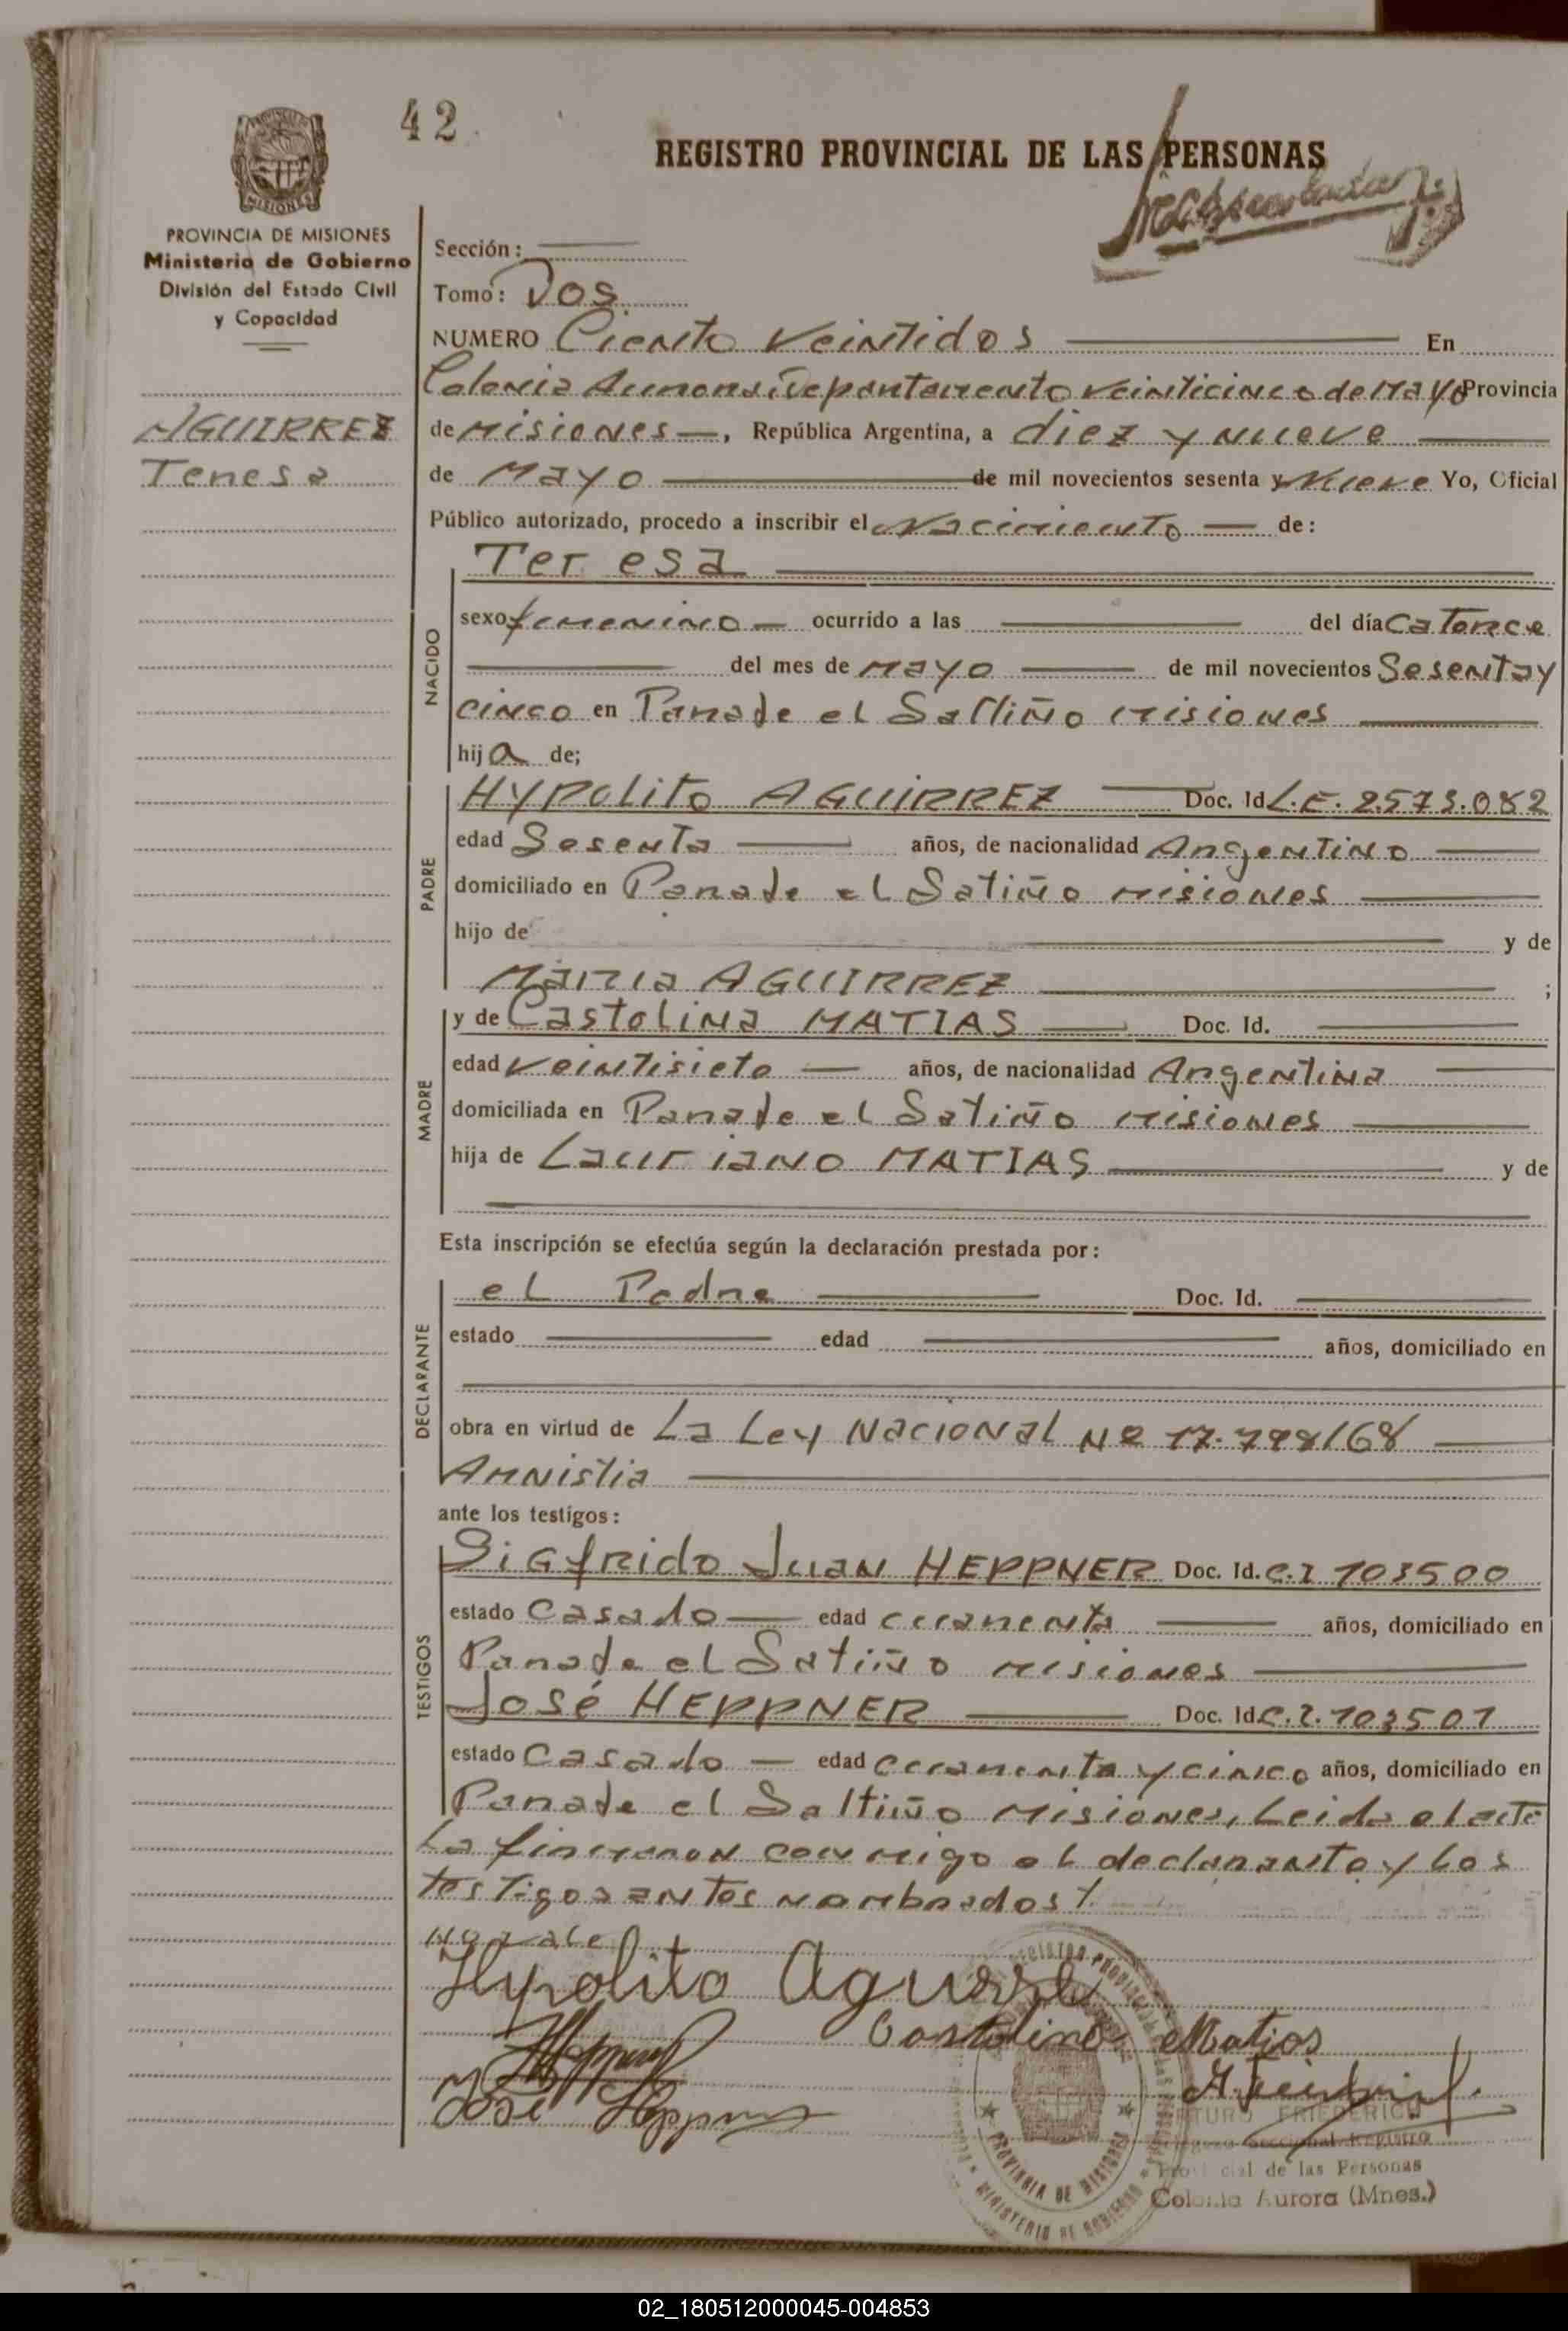 42
REGISTRO PROVINCIAL DE LAS PERSONAS
PROVINCIA DE
MISIONES
PROVINCIA DE MISIONES
Ministerio de Gobierno
División del Estado Civil
y Capacidad
AGUIRREZ
Teresa
Sección:
Tomo: Dos
NUMERO Ciento Veintidos En
Colonia Aurora, Departamento Veinticinco de Mayo Provincia
de Misiones, República Argentina, a diez y nueve
de Mayo de mil novecientos sesenta y Nueve Yo, Oficial
Público autorizado, procedo a inscribir el Nacimiento de:
NACIDO
Teresa
sexo femenino ocurrido a las del día Catorce
del mes de Mayo de mil novecientos Sesenta y
cinco en Parada el Saltiño Misiones
hija de;
PADRE
Hypolito AGUIRREZ Doc. Id L.E. 2573.082
edad Sesenta años, de nacionalidad Argentino
domiciliado en Parada el Satiño Misiones
hijo de y de
Maria AGUIRREZ ;
MADRE
y de Castolina MATIAS Doc. Id.
edad Veintisiete años, de nacionalidad Argentina
domiciliada en Parada el Satiño Misiones
hija de Lauriano MATIAS y de
Esta inscripción se efectúa según la declaración prestada por:
DECLARANTE
el Padre Doc. Id.
estado edad años, domiciliado en
obra en virtud de La Ley Nacional Nº 17.798/68
Amnistia
ante los testigos:
TESTIGOS
Sigfrido Juan HEPPNER Doc. Id. C.I 103500
estado Casado edad cuarenta años, domiciliado en
Parada el Satiño Misiones
José HEPPNER Doc. Id C.I. 103501
estado Casado edad cuarenta y cinco años, domiciliado en
Parada el Saltiño Misiones, Leida el acta
La firmaron conmigo el declarante y los
testigos antes nombrados
no vale
Hypolito Aguirre
Castolina Matias
Heppner
José Heppner
ARTURO FRIEDERICH
Delegado Seccional Registro
Provincial de las Personas
Colonia Aurora (Mnes.)
PROVINCIA DE MISIONES
MINISTERIO DE GOBIERNO
02_180512000045-004853